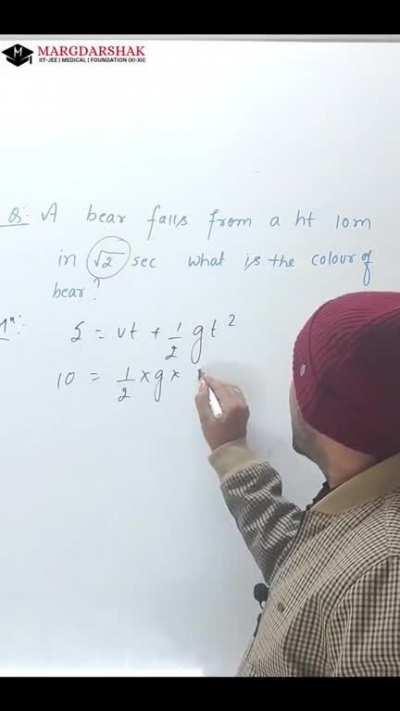 MARGDARSHAK
IIT-JEE | MEDICAL | FOUNDATION (XI-XII)
Q: A bear falls from a ht 10m
in √2 sec what is the colour of
bear?
S = ut + 1/2 gt²
10 = 1/2 × g ×